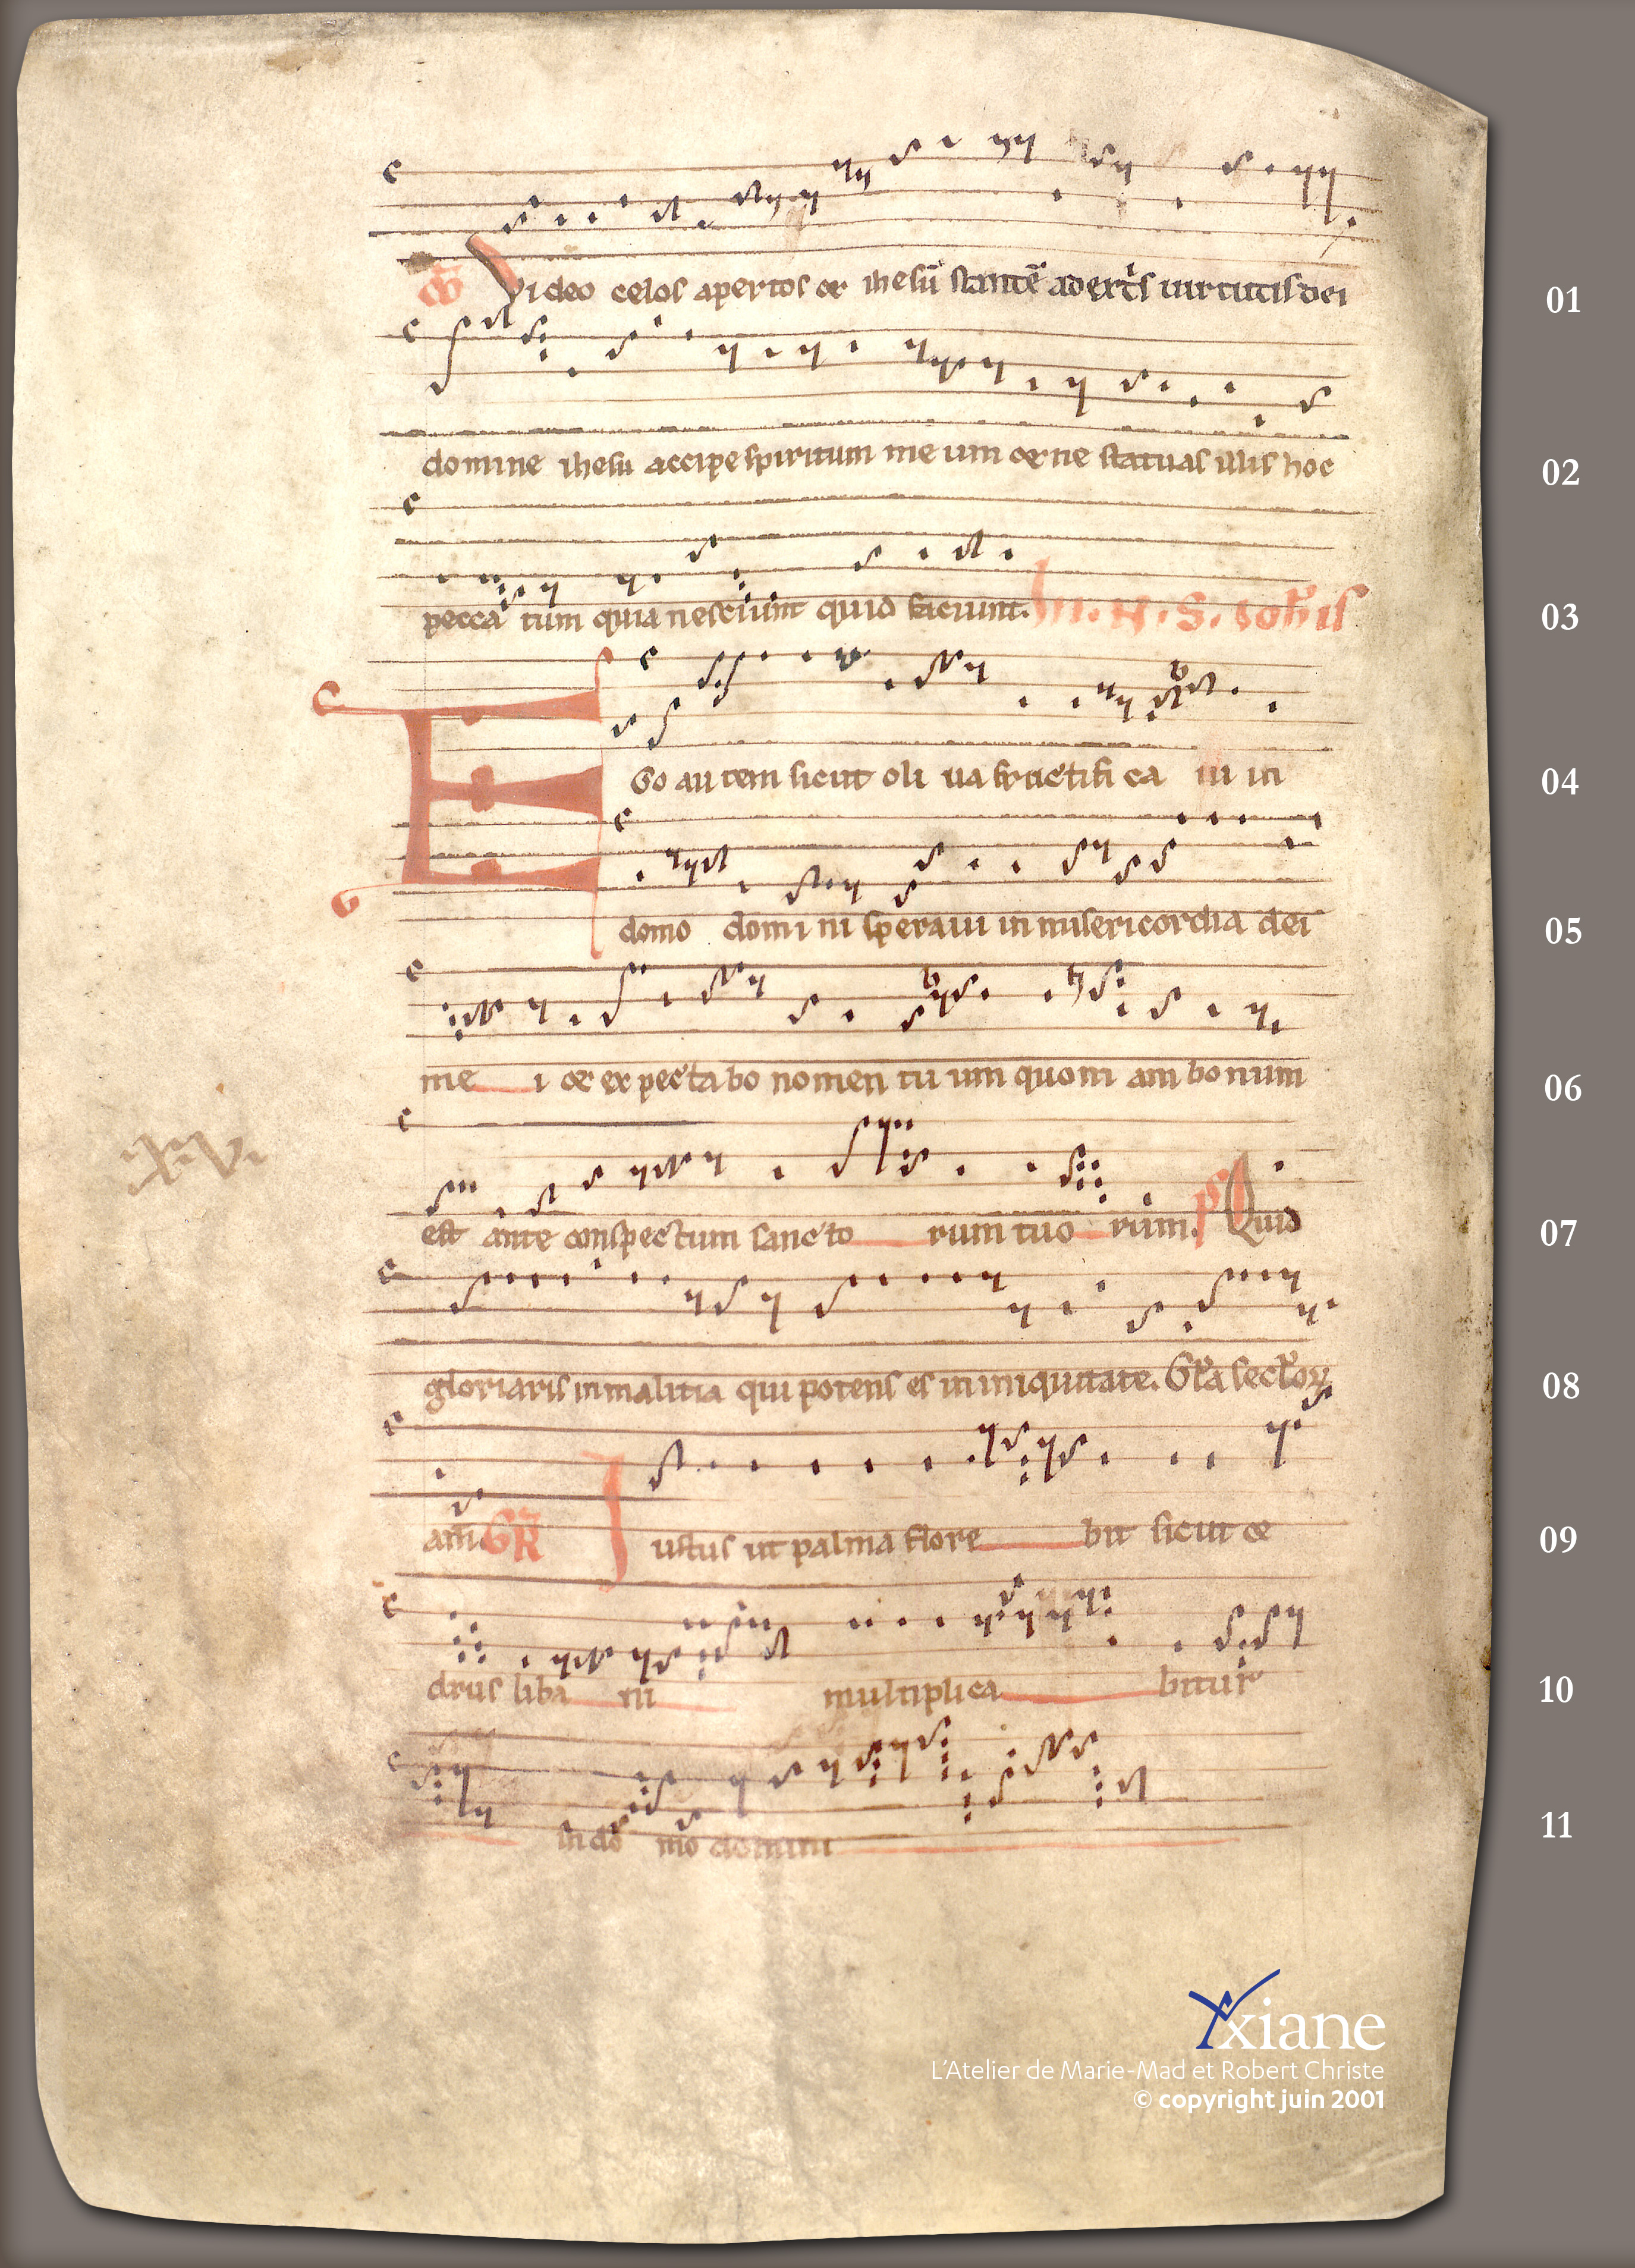 c̄o Video celos apertos et ihesū stantē ad extĭs uirtutis dei 01
domine ihesu accipe spiritum meum et ne statuas illis hoc 02
pecca tum quia nesciunt quid faciunt. In. N. S. Ioh̄is 03
EGo autem sicut oli ua fructifi ca ui in 04
domo domi ni speraui in misericordia dei 05
me i et expecta bo nomen tu um quoni am bonum 06
.XV.
est ante conspectum sancto rum tuo rum. ps Quid 07
gloriaris in malitia qui potens es in iniquitate. Gła secłoꝝ 08
am. GR Iustus ut palma flore bit sicut ce 09
drus liba ni multiplica bitur 10
in do mo domini 11
xiane
L'Atelier de Marie-Mad et Robert Christe
© copyright juin 2001